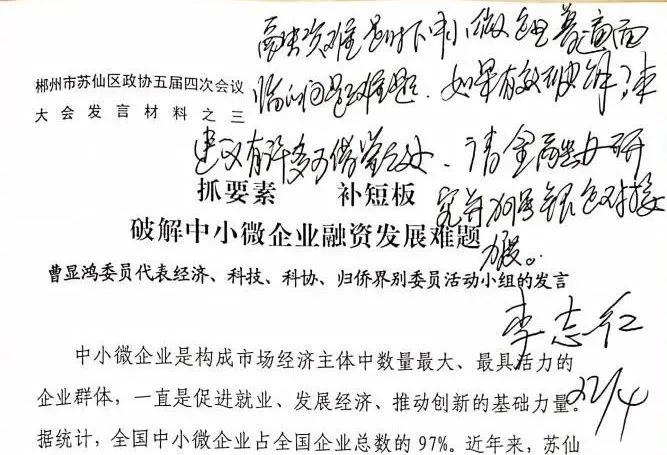 融资难是时下中小微企业普遍面
临的问题难题。如果有效破解？本
建议有许多可借鉴之处，请金融办研
究并加强银企对接
力度。
李志红
22/4
郴州市苏仙区政协五届四次会议
大会发言材料之三
抓要素 补短板
破解中小微企业融资发展难题
曹显鸿委员代表经济、科技、科协、归侨界别委员活动小组的发言
中小微企业是构成市场经济主体中数量最大、最具活力的
企业群体，一直是促进就业、发展经济、推动创新的基础力量。
据统计，全国中小微企业占全国企业总数的97%。近年来，苏仙